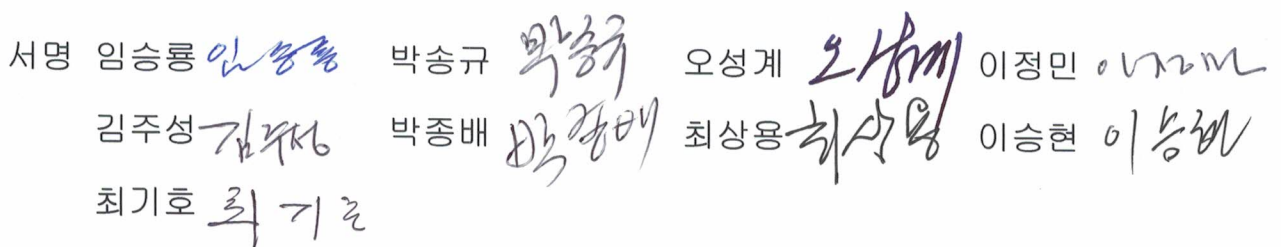 서명 임승룡 임승룡 박송규 박송규 오성계 오성계 이정민 이정민
김주성 김주성 박종배 박종배 최상용 최상용 이승현 이승현
최기호 최기호